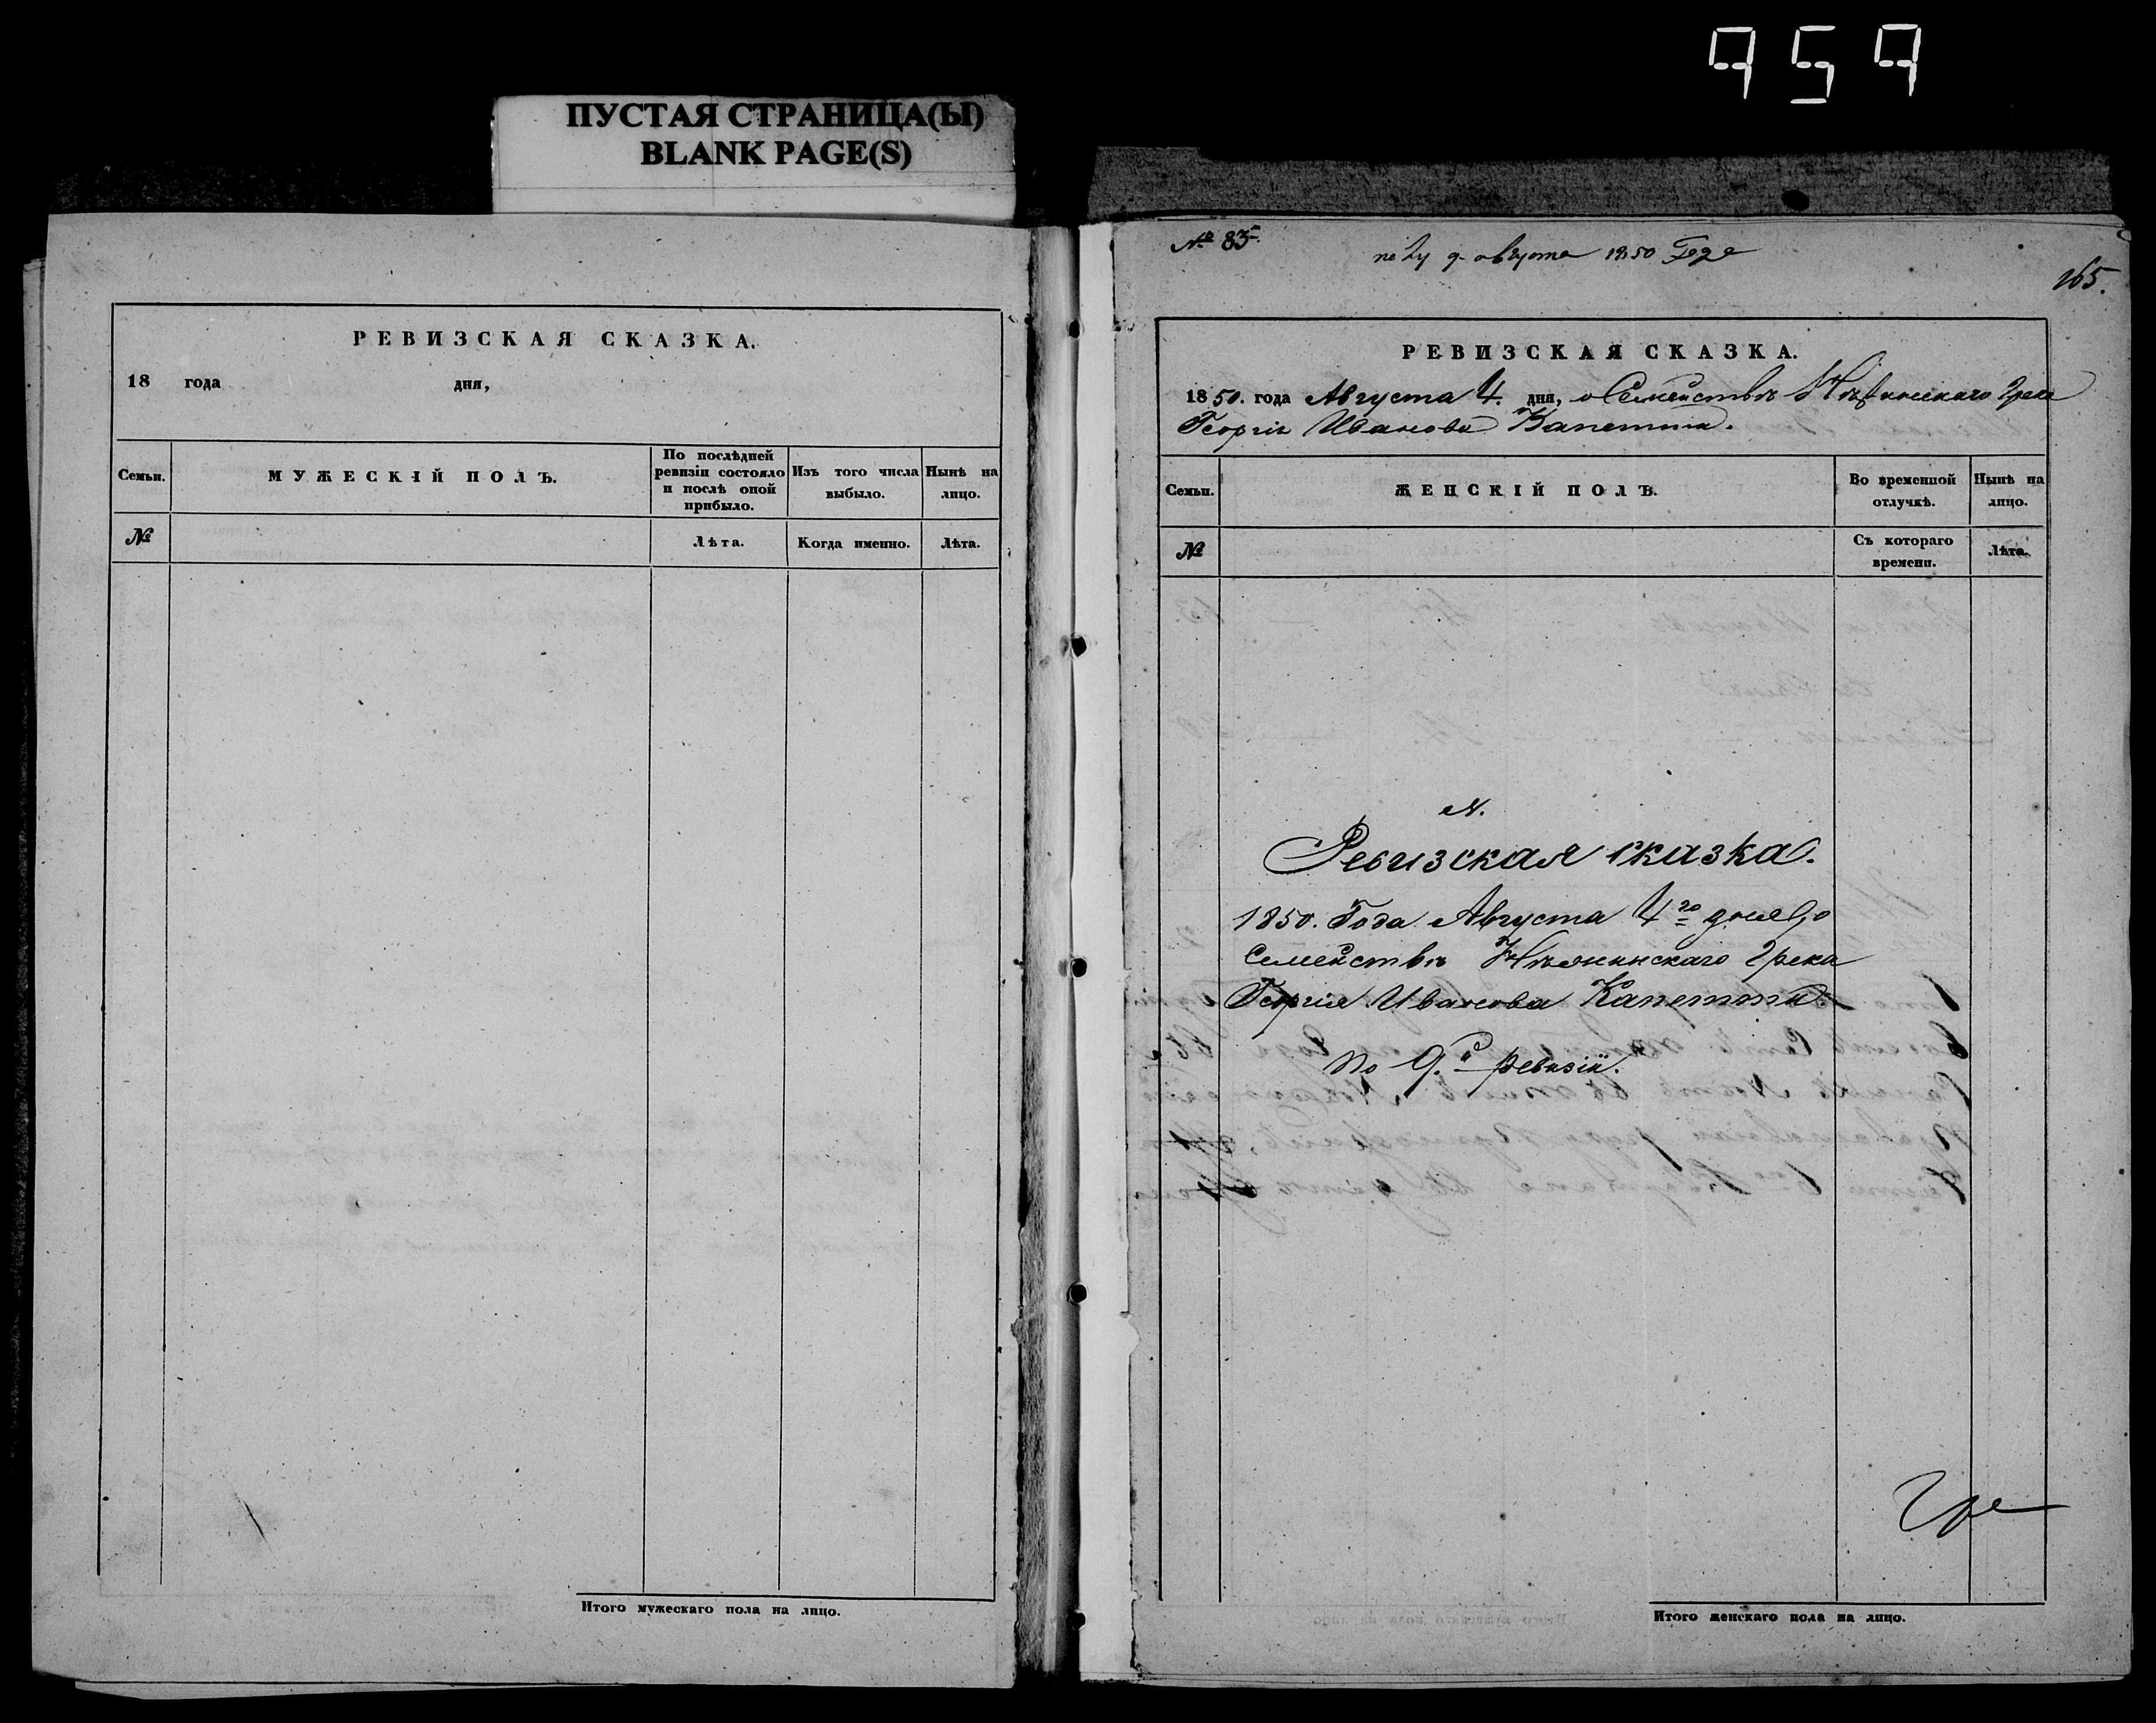 959
ПУСТАЯ СТРАНИЦА(Ы)
BLANK PAGE(S)
РЕВИЗСКАЯ СКАЗКА.
18 года дня,
Семьи.
МУЖЕСКІЙ ПОЛЪ.
По послѣдней ревизіи состояло и послѣ оной прибыло.
Изъ того числа выбыло.
Нынѣ на лицо.
№
Лѣта.
Когда именно.
Лѣта.
Итого мужескаго пола на лицо.
№ 83
августа 1850
165.
РЕВИЗСКАЯ СКАЗКА.
1850. года Августа 4. дня, о Семействѣ Нѣжинскаго Грека
Георгія Иванова Капетти.
Семьи.
ЖЕНСКІЙ ПОЛЪ.
Во временной отлучкѣ.
Нынѣ на лицо.
№
Съ котораго времени.
Лѣта.
N.
Ревизская сказка.
1850. Года Августа 4го дня о
Семействѣ Нѣжинскаго Грека
Георгія Иванова Капетти
По 9.й ревизіи.
Итого женскаго пола на лицо.